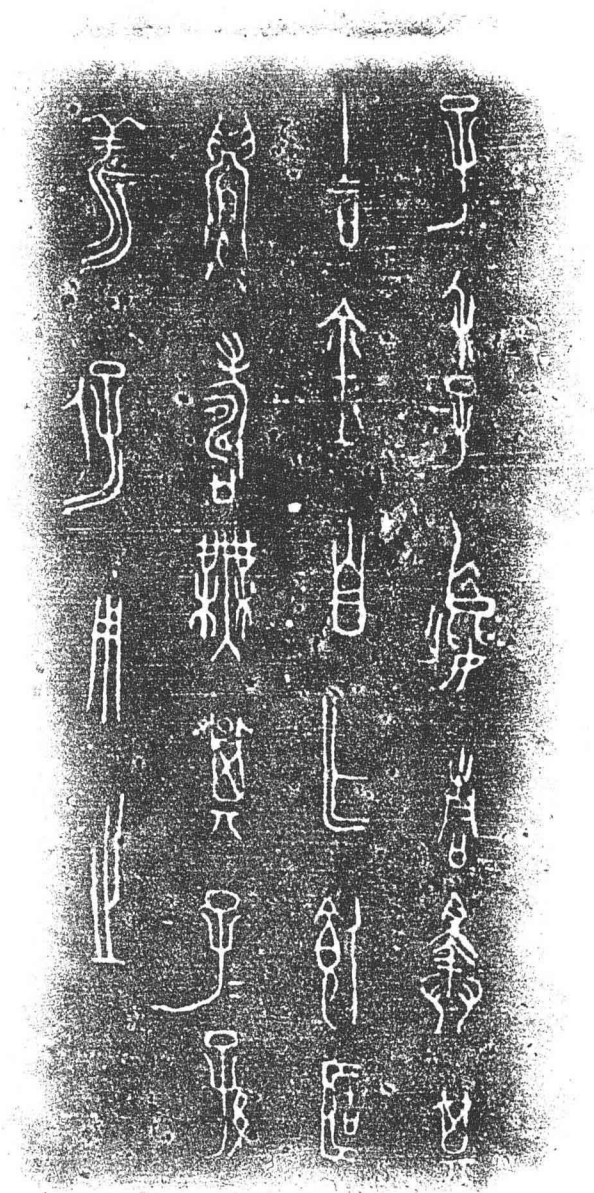 子季嬴青擇其
吉金自乍飤𠤳
眉壽無其子=孫
羕保用之